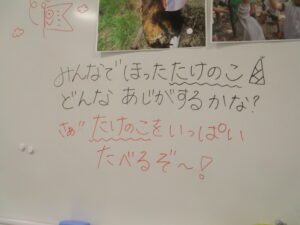 みんなでほったたけのこ
どんなあじがするかな?
さぁ たけのこをいっぱい
たべるぞ〜!